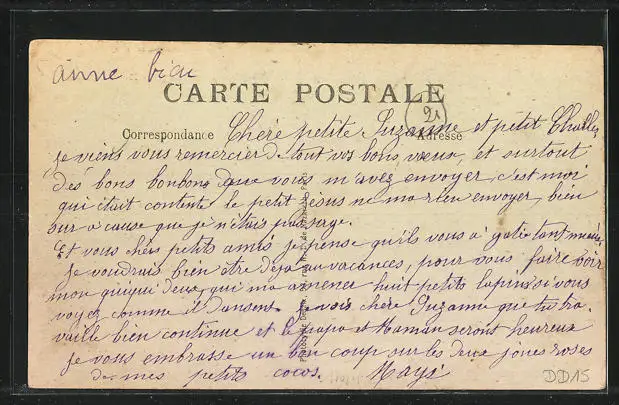 anne bien
CARTE POSTALE
21
Correspondance Chère petite Suzanne et petit Charles
Adresse
je viens vous remercier de tout vos bons vœux, et surtout
des bons bonbons que vous m'avez envoyer, c'est moi
qui était contente le petit Jésus ne ma rien envoyer, bien
sur a cause que je n'étais pas sage.
Et vous chers petits amis je pense qu'ils vous a gatée tant mieux,
je voudrais bien être déja au vacances, pour vous faire voir
mon deux, qui ma amener huit petits lapins si vous
voyez comme il dansent. Je vois chère Suzanne que tu tra
vaille bien continue et le papa et Maman seront heureux
je vous embrasse un bon coup sur les deux joues roses
de mes petits cocos. Mays
DD15